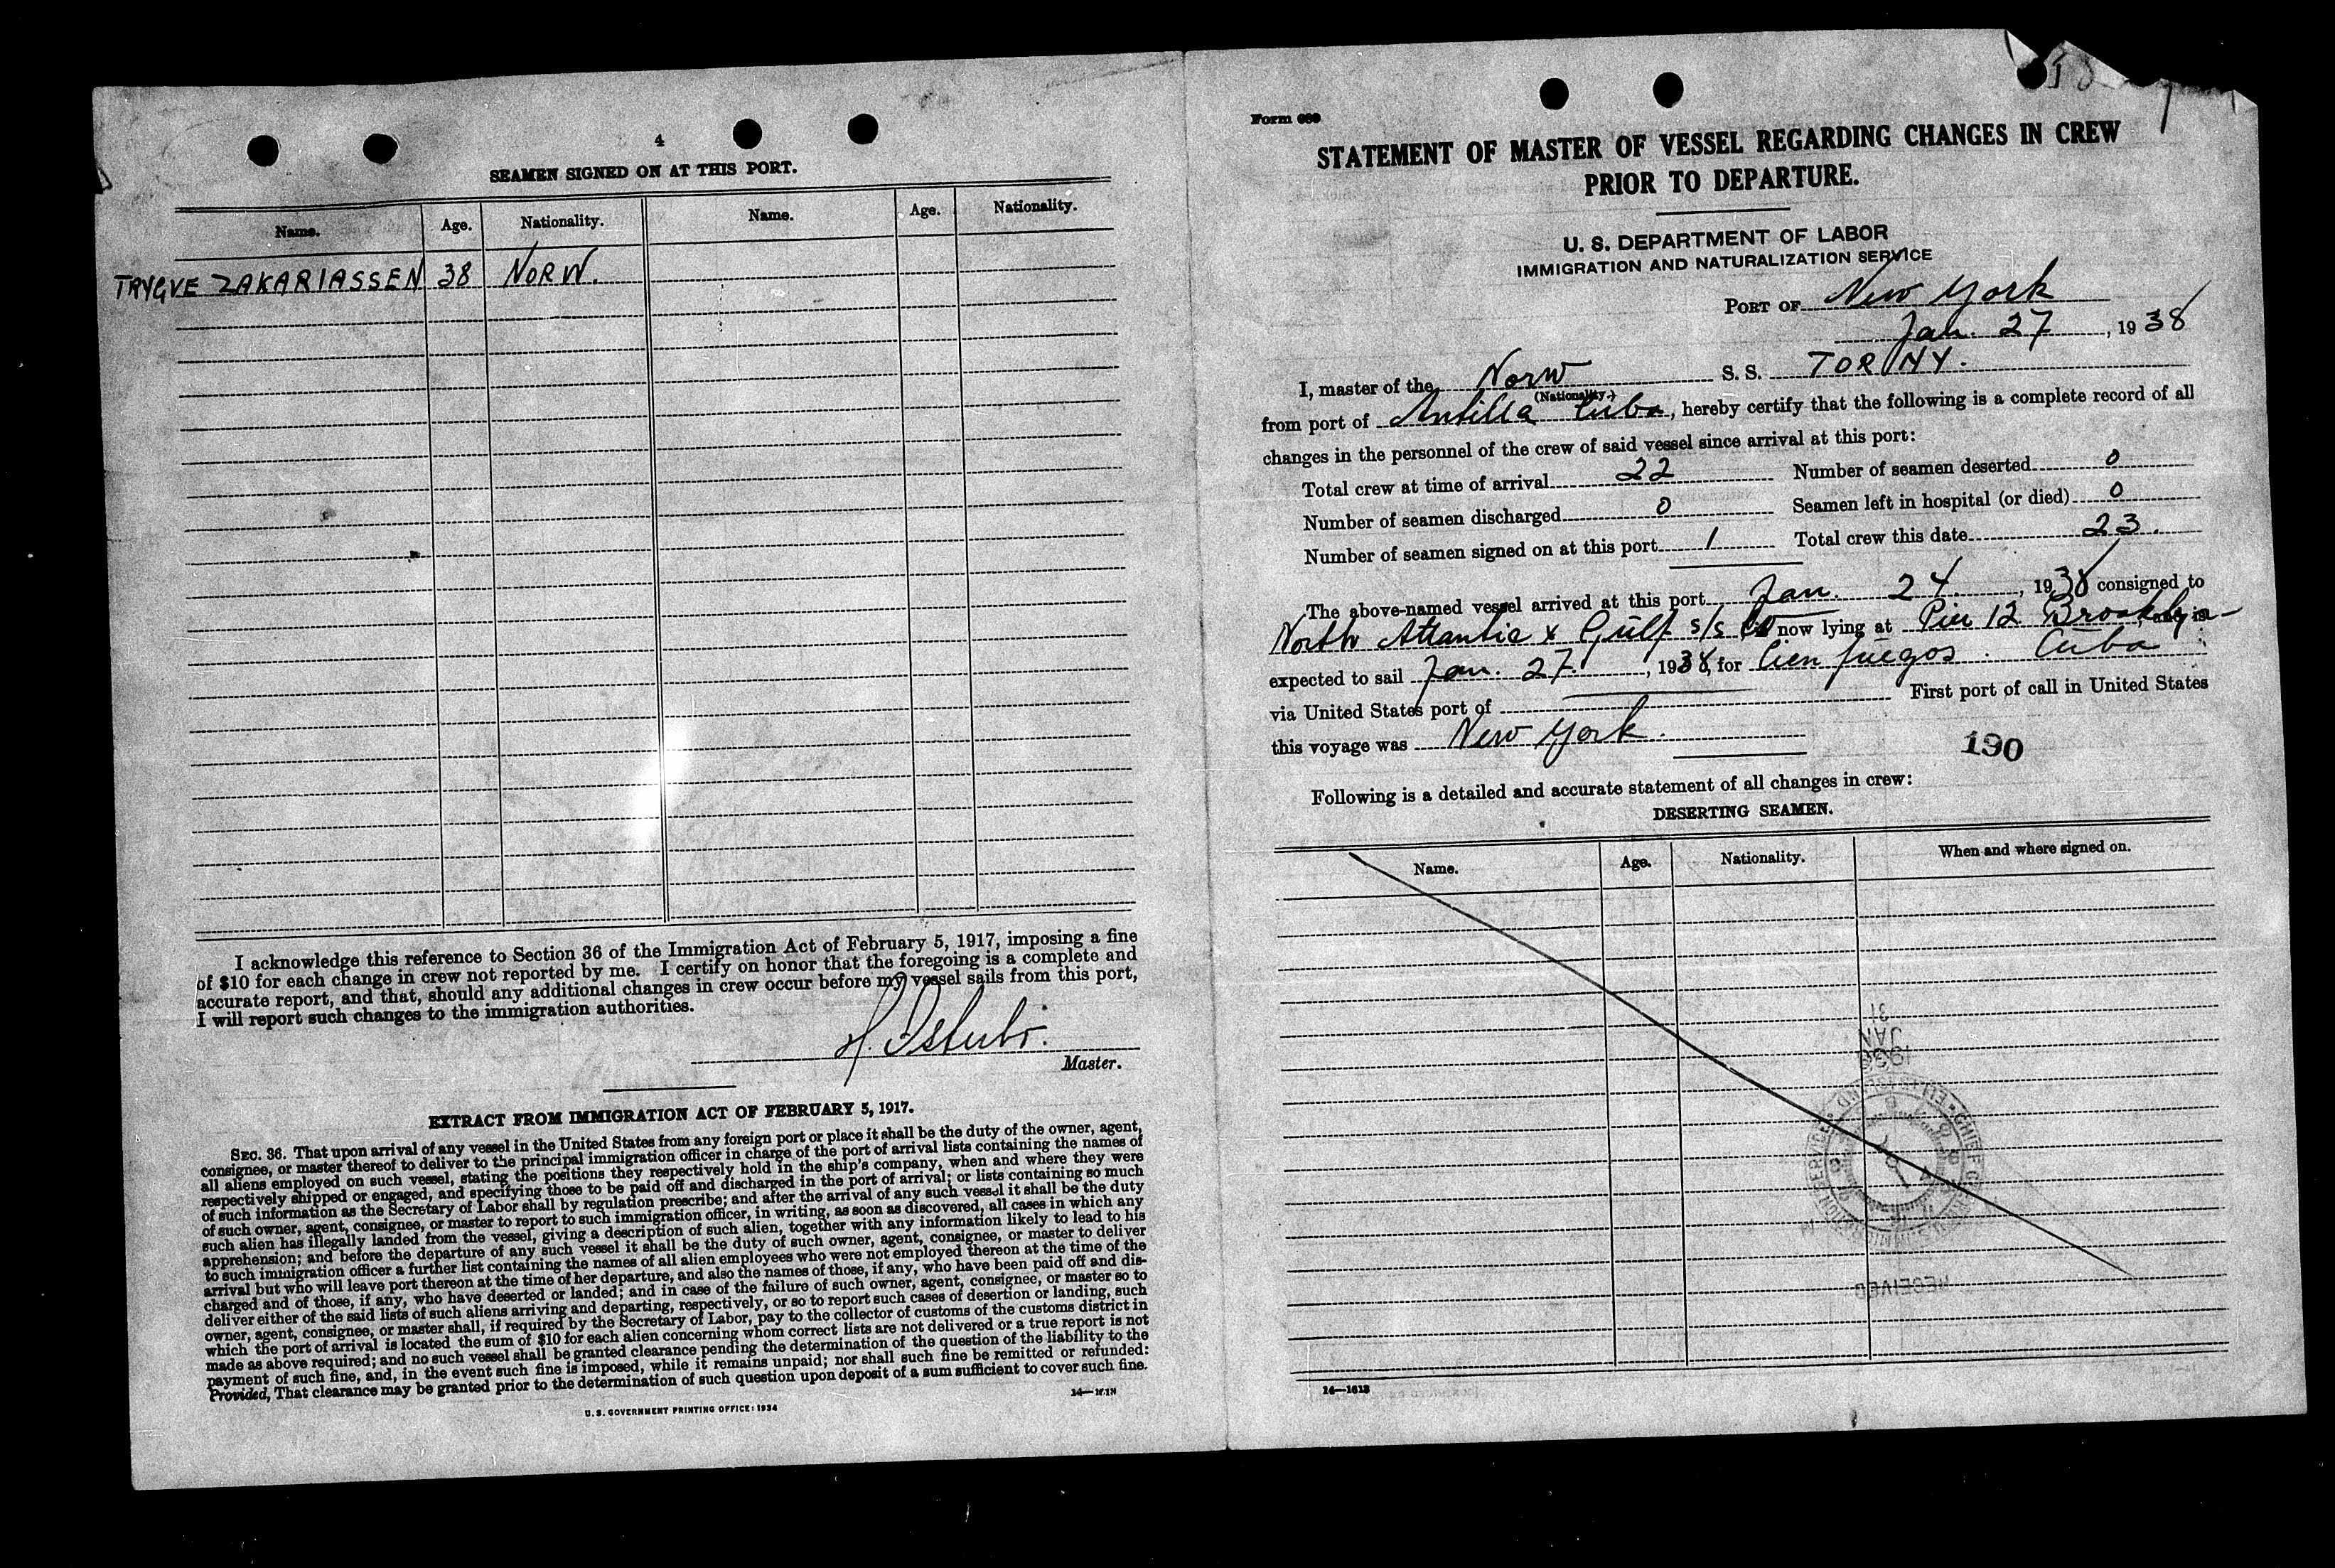 4
SEAMEN SIGNED ON AT THIS PORT.
Name. Age. Nationality. Name. Age. Nationality.
TRYGVE ZAKARIASSEN 38 NORW.
I acknowledge this reference to Section 36 of the Immigration Act of February 5, 1917, imposing a fine
of $10 for each change in crew not reported by me. I certify on honor that the foregoing is a complete and
accurate report, and that, should any additional changes in crew occur before my vessel sails from this port,
I will report such changes to the immigration authorities.
Master.
EXTRACT FROM IMMIGRATION ACT OF FEBRUARY 5, 1917.
SEC. 36. That upon arrival of any vessel in the United States from any foreign port or place it shall be the duty of the owner, agent,
consignee, or master thereof to deliver to the principal immigration officer in charge of the port of arrival lists containing the names of
all aliens employed on such vessel, stating the positions they respectively hold in the ship's company, when and where they were
respectively shipped or engaged, and specifying those to be paid off and discharged in the port of arrival; or lists containing so much
of such information as the Secretary of Labor shall by regulation prescribe; and after the arrival of any such vessel it shall be the duty
of such owner, agent, consignee, or master to report to such immigration officer, in writing, as soon as discovered, all cases in which any
such alien has illegally landed from the vessel, giving a description of such alien, together with any information likely to lead to his
apprehension; and before the departure of any such vessel it shall be the duty of such owner, agent, consignee, or master to deliver
to such immigration officer a further list containing the names of all alien employees who were not employed thereon at the time of the
arrival but who will leave port thereon at the time of her departure, and also the names of those, if any, who have been paid off and dis-
charged and of those, if any, who have deserted or landed; and in case of the failure of such owner, agent, consignee, or master so to
deliver either of the said lists of such aliens arriving and departing, respectively, or so to report such cases of desertion or landing, such
owner, agent, consignee, or master shall, if required by the Secretary of Labor, pay to the collector of customs of the customs district in
which the port of arrival is located the sum of $10 for each alien concerning whom correct lists are not delivered or a true report is not
made as above required; and no such vessel shall be granted clearance pending the determination of the question of the liability to the
payment of such fine, and, in the event such fine is imposed, while it remains unpaid; nor shall such fine be remitted or refunded:
Provided, That clearance may be granted prior to the determination of such question upon deposit of a sum sufficient to cover such fine.
U.S. GOVERNMENT PRINTING OFFICE: 1934
Form 689
STATEMENT OF MASTER OF VESSEL REGARDING CHANGES IN CREW
PRIOR TO DEPARTURE.
U. S. DEPARTMENT OF LABOR
IMMIGRATION AND NATURALIZATION SERVICE
PORT OF New York
Jan. 27, 1938
I, master of the Norw S. S. TORNY.
(Nationality.)
from port of Antilla Cuba, hereby certify that the following is a complete record of all
changes in the personnel of the crew of said vessel since arrival at this port:
Total crew at time of arrival 22 Number of seamen deserted 0
Number of seamen discharged 0 Seamen left in hospital (or died) 0
Number of seamen signed on at this port 1 Total crew this date 23.
The above-named vessel arrived at this port Jan. 24., 1938 consigned to
North Atlantic & Gulf S/S Co now lying at Pier 12 Brooklyn and is
expected to sail Jan. 27., 1938, for Cienfuegos. Cuba
via United States port of First port of call in United States
this voyage was New York.
190
Following is a detailed and accurate statement of all changes in crew:
DESERTING SEAMEN.
Name. Age. Nationality. When and where signed on.
31
JAN
1938
RECEIVED
14—1618